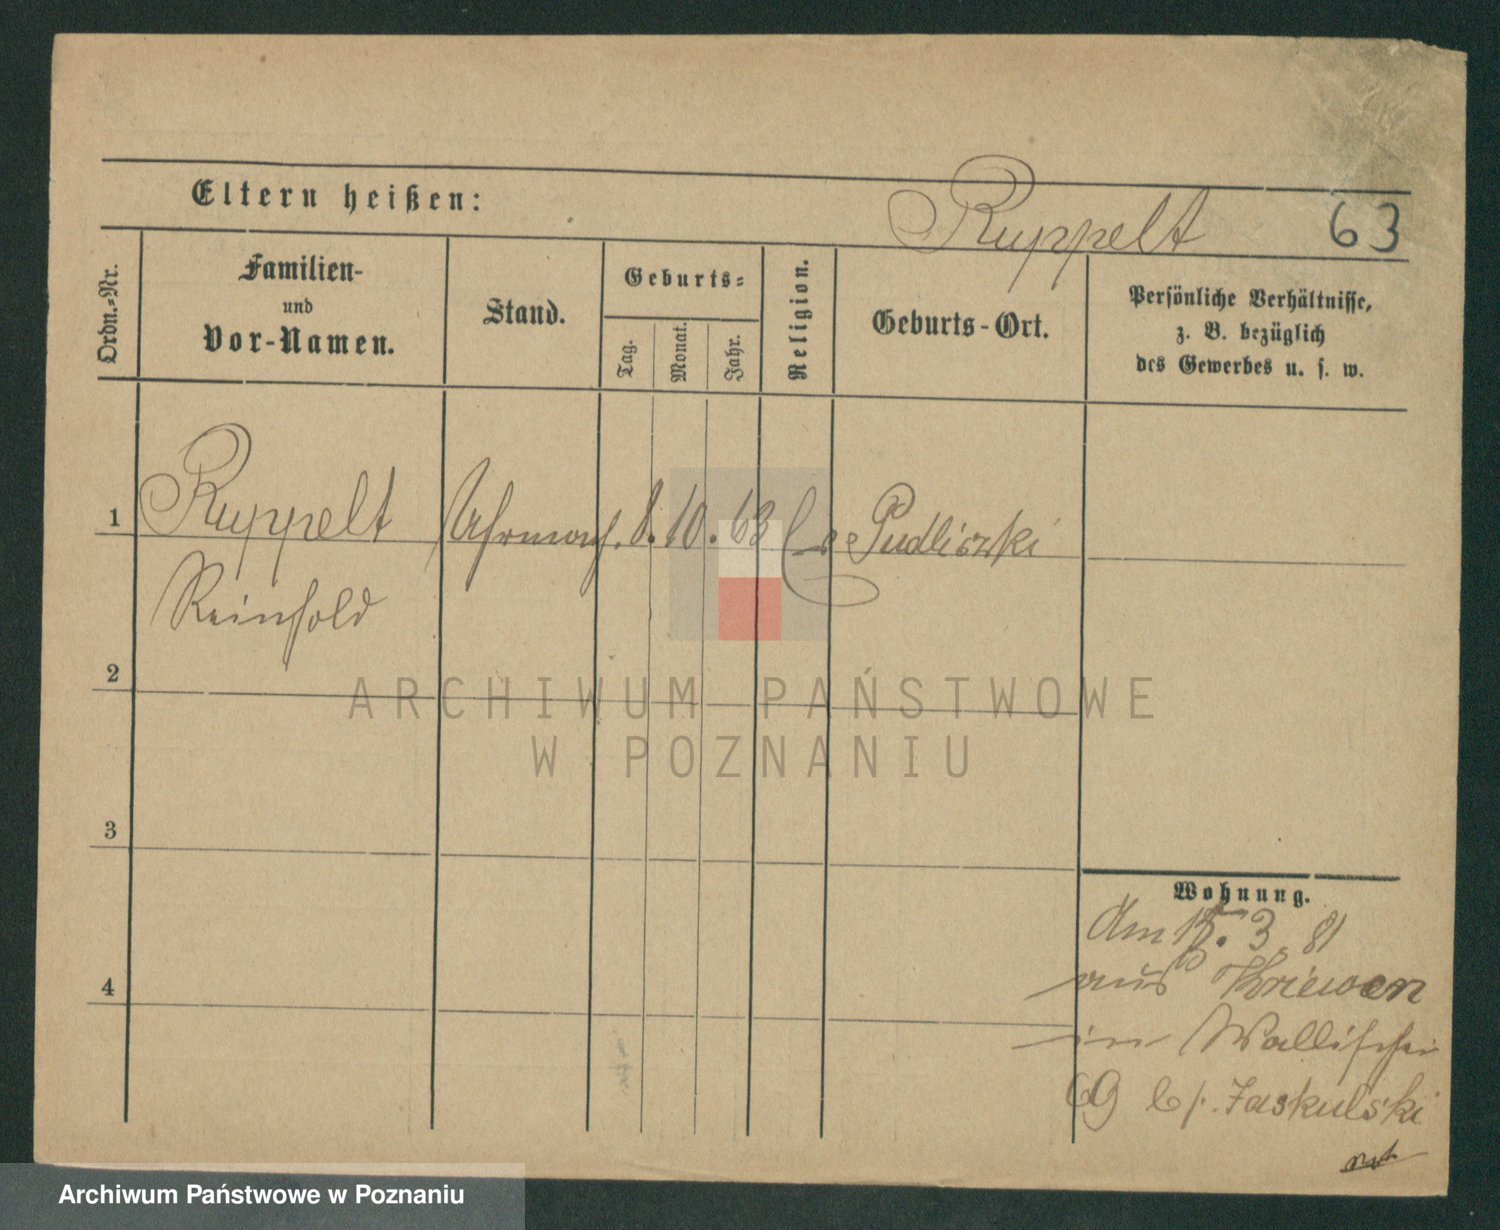 Eltern heißen:
Ruppelt
63
Ordn.-Nr.
Familien-
und
Vor-Namen.
Stand.
Geburts-
Tag.
Monat.
Jahr.
Religion.
Geburts-Ort.
Persönliche Verhältnisse,
z. B. bezüglich
des Gewerbes u. s. w.
1
Ruppelt
Uhrmach. 8. 10. 63 Pudliszki
Reinhold
2
ARCHIWUM PAŃSTWOWE
W POZNANIU
3
Wohnung.
Am 15. 3. 81
aus Kriewen
4
in Wallischei
69 b/. Jaskulski
Archiwum Państwowe w Poznaniu